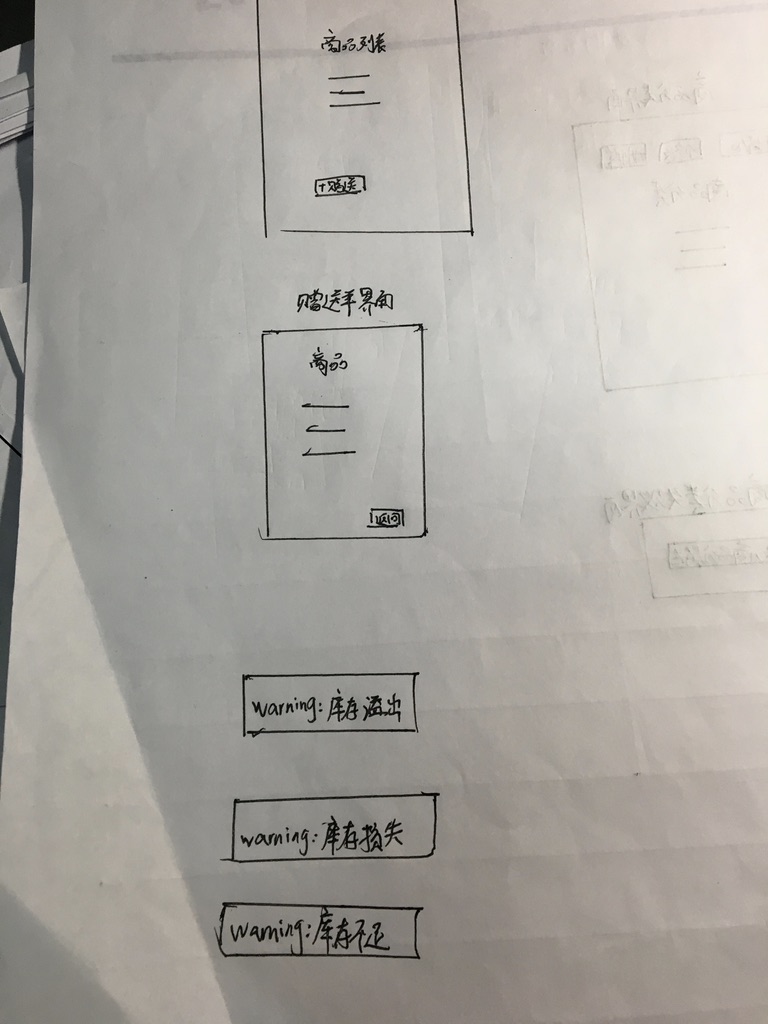 商品列表
+赠送
赠送单界面
商品
返回
warning:库存溢出
warning:库存损失
warning:库存不足